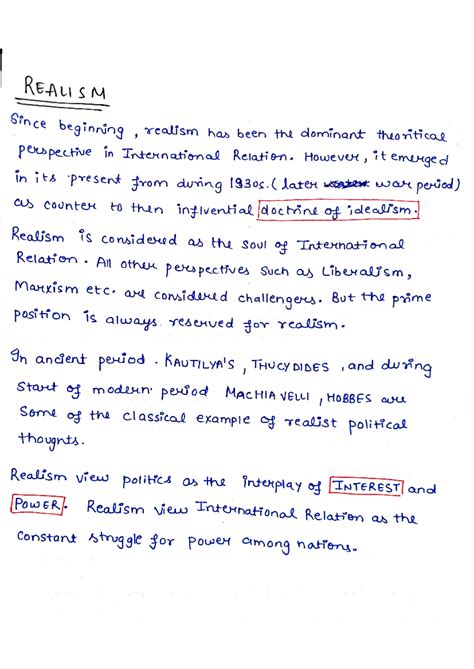 REALISM
Since beginning, realism has been the dominant theoritical
perspective in International Relation. However, it emerged
in its present from during 1930s. (later war period)
as counter to then influential doctrine of idealism.
Realism is considered as the soul of International
Relation. All other perspectives such as Liberalism,
Marxism etc. are considered challengers. But the prime
position is always reserved for realism.
In ancient period. KAUTILYA'S, THUCYDIDES, and during
start of modern period MACHIAVELLI, HOBBES are
some of the classical example of realist political
thoughts.
Realism view politics as the interplay of INTEREST and
POWER. Realism view International Relation as the
constant struggle for power among nations.